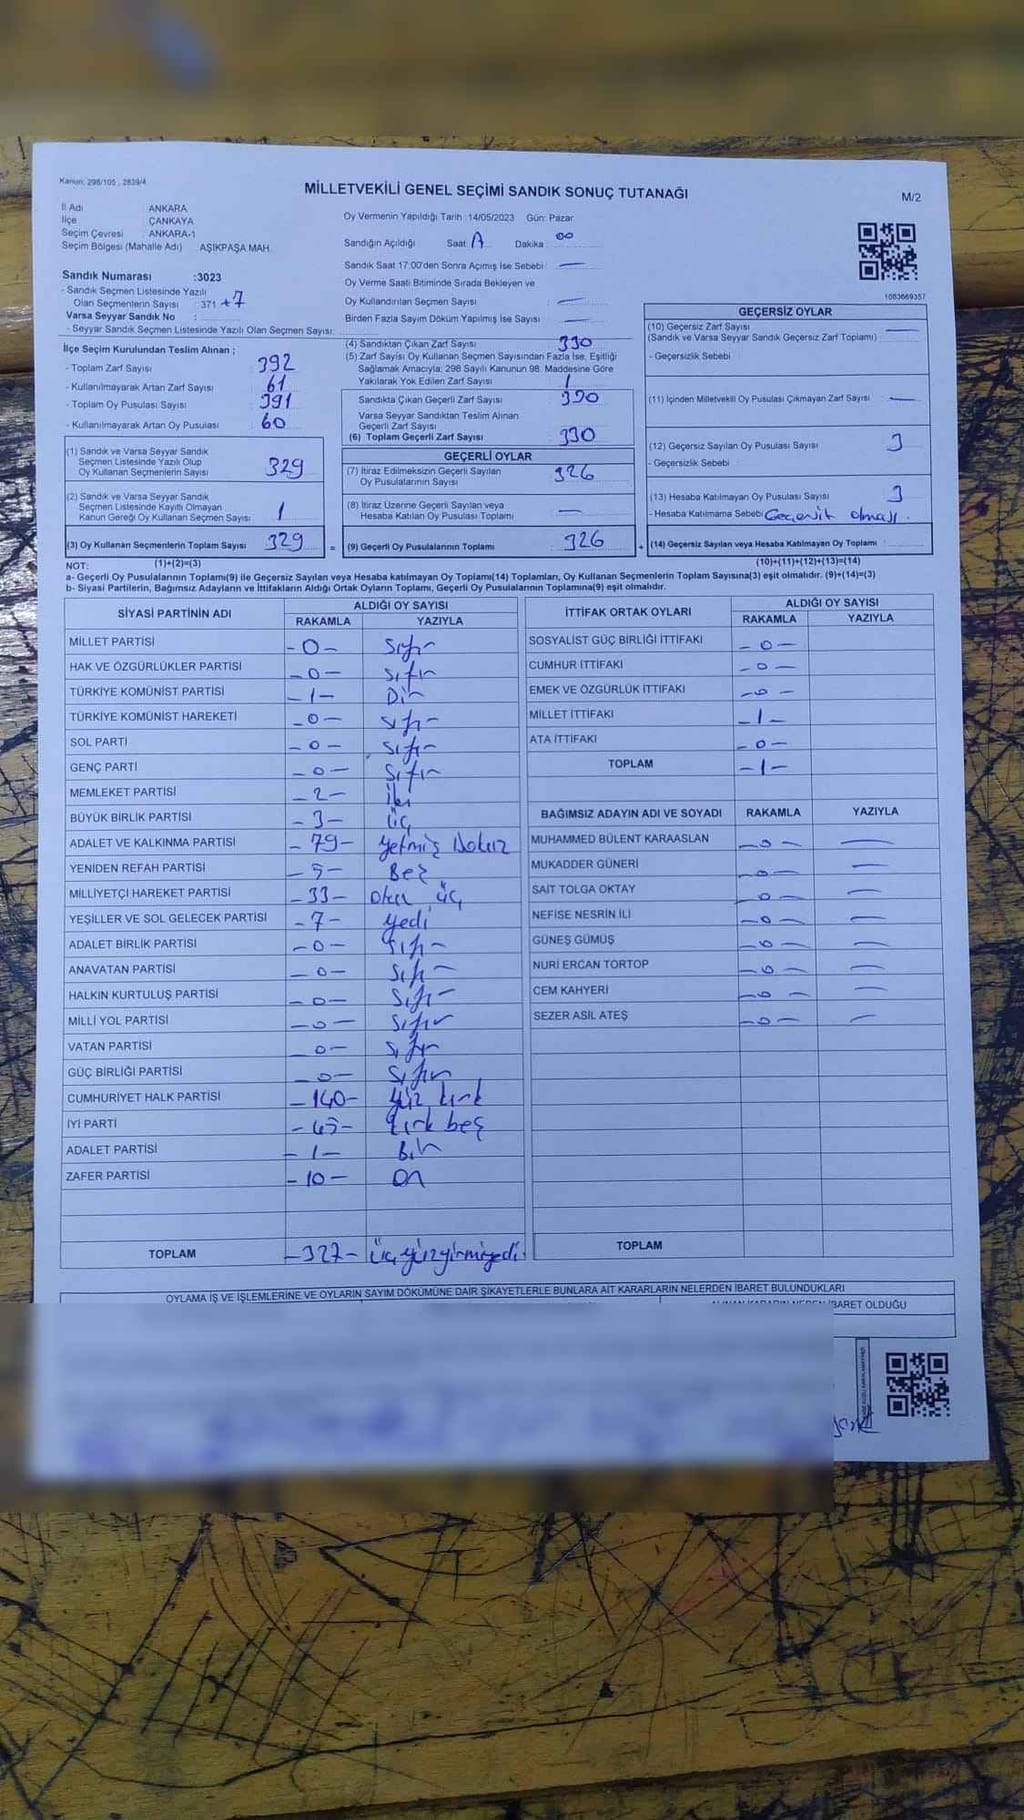 Kanun: 298/105 , 2839/4
MİLLETVEKİLİ GENEL SEÇİMİ SANDIK SONUÇ TUTANAĞI
M/2
İl Adı ANKARA
İlçe ÇANKAYA
Seçim Çevresi ANKARA-1
Seçim Bölgesi (Mahalle Adı) AŞIKPAŞA MAH.
Oy Vermenin Yapıldığı Tarih :14/05/2023 Gün: Pazar
Sandığın Açıldığı Saat: Dakika : 00
Sandık Saat 17:00'den Sonra Açımış İse Sebebi : —
Oy Verme Saati Bitiminde Sırada Bekleyen ve
Oy Kullandırılan Seçmen Sayısı : —
Birden Fazla Sayım Döküm Yapılmış İse Sayısı : —
Sandık Numarası :3023
- Sandık Seçmen Listesinde Yazılı
Olan Seçmenlerin Sayısı : 371 +7
Varsa Seyyar Sandık No :
- Seyyar Sandık Seçmen Listesinde Yazılı Olan Seçmen Sayısı:
1003669357
İlçe Seçim Kurulundan Teslim Alınan ;
- Toplam Zarf Sayısı 392
- Kullanılmayarak Artan Zarf Sayısı 61
- Toplam Oy Pusulası Sayısı 391
- Kullanılmayarak Artan Oy Pusulası 60
(1) Sandık ve Varsa Seyyar Sandık
Seçmen Listesinde Yazılı Olup
Oy Kullanan Seçmenlerin Sayısı 329
(2) Sandık ve Varsa Seyyar Sandık
Seçmen Listesinde Kayıtlı Olmayan
Kanun Gereği Oy Kullanan Seçmen Sayısı 1
(3) Oy Kullanan Seçmenlerin Toplam Sayısı 329 =
(4) Sandıktan Çıkan Zarf Sayısı 330
(5) Zarf Sayısı Oy Kullanan Seçmen Sayısından Fazla İse, Eşitliği
Sağlamak Amacıyla; 298 Sayılı Kanunun 98. Maddesine Göre
Yakılarak Yok Edilen Zarf Sayısı 1
Sandıkta Çıkan Geçerli Zarf Sayısı 330
Varsa Seyyar Sandıktan Teslim Alınan
Geçerli Zarf Sayısı
(6) Toplam Geçerli Zarf Sayısı 330
GEÇERLİ OYLAR
(7) İtiraz Edilmeksizin Geçerli Sayılan
Oy Pusulalarının Sayısı 326
(8) İtiraz Üzerine Geçerli Sayılan veya
Hesaba Katılan Oy Pusulası Toplamı —
(9) Geçerli Oy Pusulalarının Toplamı 326 +
GEÇERSİZ OYLAR
(10) Geçersiz Zarf Sayısı —
(Sandık ve Varsa Seyyar Sandık Geçersiz Zarf Toplamı) :
- Geçersizlik Sebebi :
(11) İçinden Milletvekili Oy Pusulası Çıkmayan Zarf Sayısı : —
(12) Geçersiz Sayılan Oy Pusulası Sayısı : 3
- Geçersizlik Sebebi :
(13) Hesaba Katılmayan Oy Pusulası Sayısı : 3
- Hesaba Katılmama Sebebi:
(14) Geçersiz Sayılan veya Hesaba Katılmayan Oy Toplamı :
NOT: (1)+(2)=(3) (10)+(11)+(12)+(13)=(14)
a- Geçerli Oy Pusulalarının Toplamı(9) ile Geçersiz Sayılan veya Hesaba katılmayan Oy Toplamı(14) Toplamları, Oy Kullanan Seçmenlerin Toplam Sayısına(3) eşit olmalıdır. (9)+(14)=(3)
b- Siyasi Partilerin, Bağımsız Adayların ve İttifakların Aldığı Ortak Oyların Toplamı, Geçerli Oy Pusulalarının Toplamına(9) eşit olmalıdır.
SİYASİ PARTİNİN ADI ALDIĞI OY SAYISI
RAKAMLA YAZIYLA
MİLLET PARTİSİ -0- Sıfır
HAK VE ÖZGÜRLÜKLER PARTİSİ -0- Sıfır
TÜRKİYE KOMÜNİST PARTİSİ -1- Bir
TÜRKİYE KOMÜNİST HAREKETİ -0- Sıfır
SOL PARTİ -0- Sıfır
GENÇ PARTİ -0- Sıfır
MEMLEKET PARTİSİ -2- İki
BÜYÜK BİRLİK PARTİSİ -3- Üç
ADALET VE KALKINMA PARTİSİ -79- Yetmiş Dokuz
YENİDEN REFAH PARTİSİ -5- Beş
MİLLİYETÇİ HAREKET PARTİSİ -33- Otuz üç
YEŞİLLER VE SOL GELECEK PARTİSİ -7- Yedi
ADALET BİRLİK PARTİSİ -0- Sıfır
ANAVATAN PARTİSİ -0- Sıfır
HALKIN KURTULUŞ PARTİSİ -0- Sıfır
MİLLİ YOL PARTİSİ -0- Sıfır
VATAN PARTİSİ -0- Sıfır
GÜÇ BİRLİĞİ PARTİSİ -0- Sıfır
CUMHURİYET HALK PARTİSİ -140- Yüz kırk
İYİ PARTİ -45- Kırk beş
ADALET PARTİSİ -1- Bir
ZAFER PARTİSİ -10- On
TOPLAM -327- Üç yüz yirmiyedi
İTTİFAK ORTAK OYLARI ALDIĞI OY SAYISI
RAKAMLA YAZIYLA
SOSYALİST GÜÇ BİRLİĞİ İTTİFAKI -0-
CUMHUR İTTİFAKI -0-
EMEK VE ÖZGÜRLÜK İTTİFAKI -0-
MİLLET İTTİFAKI -1-
ATA İTTİFAKI -0-
TOPLAM -1-
BAĞIMSIZ ADAYIN ADI VE SOYADI RAKAMLA YAZIYLA
MUHAMMED BÜLENT KARAASLAN -0- —
MUKADDER GÜNERİ -0- —
SAİT TOLGA OKTAY -0- —
NEFİSE NESRİN İLİ -0- —
GÜNEŞ GÜMÜŞ -0- —
NURİ ERCAN TORTOP -0- —
CEM KAHYERİ -0- —
SEZER ASİL ATEŞ -0- —
TOPLAM
OYLAMA İŞ VE İŞLEMLERİNE VE OYLARIN SAYIM DÖKÜMÜNE DAİR ŞİKAYETLERLE BUNLARA AİT KARARLARIN NELERDEN İBARET BULUNDUKLARI
İBARET OLDUĞU